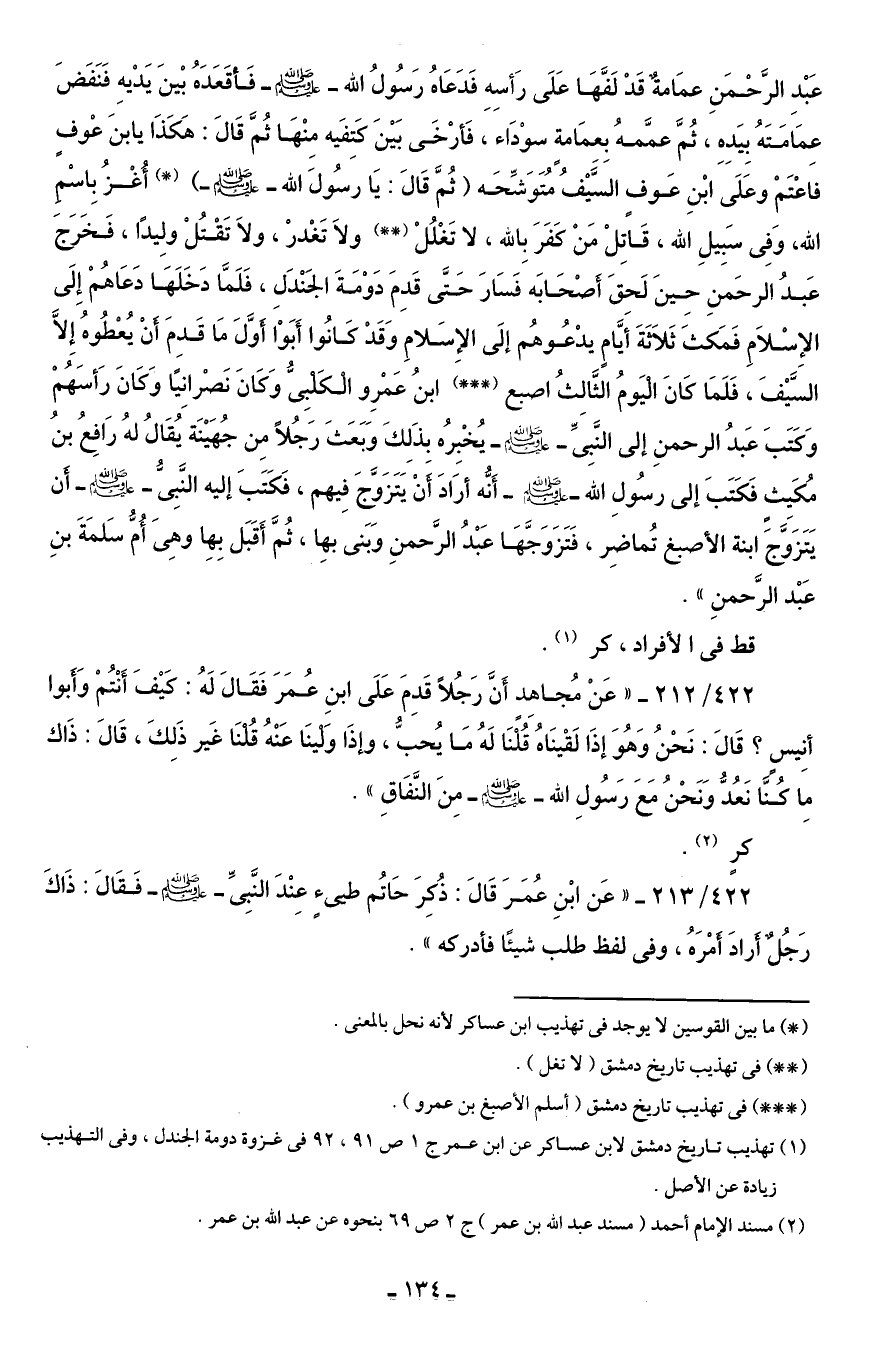 عَبْد الرَّحْمَنِ عمَامةٌ قَدْ لَفَّهَا عَلَى رَأسِه فَدَعَاهُ رَسُولُ الله ـ ﷺ ـ فَأقعَدَهُ بْينَ يَدْيهِ فَنَفَضَ
عمَامَتَهُ بِيَدِه ، ثُمَّ عممَهُ بعمامة سوْدَاء ، فَأرْخَى بَيْنَ كَتفَيه منْهَا ثُمَّ قَالَ : هَكَذَا يابنَ عوْف
فاعْتَمْ وعَلَى ابْنِ عَوف السَّيْفُ مُتَوَشِّحَه ( ثُمَّ قَالَ : يَا رسوُلَ الله ـ ﷺ ـ) (*) أغْزُ بِاسْمِ
الله، وَفى سَبِيلِ الله ، قَاتِلْ مَنْ كَفَرَ بِالله ، لا تَغْلُلْ (**) ولاَ تَغْدر ، ولاَ تَقْتُلْ وليدًا ، فَخَرَجَ
عَبدُ الرحمَنِ حينَ لَحقَ أصْحَابَه فَسارَ حَتَّى قَدِمَ دَوْمَةَ الجَنْدَل ، فَلَمَّا دَخَلَهَا دَعَاهُمْ إلى
الإسْلاَمِ فَمكَثَ ثَلاَثَةَ أيَّام يدْعُوهُم إلَى الإسْلام وَقَدْ كَانُوا أبَوْا أوَّلَ مَا قَدِمَ أنْ يُعْطُوهُ إلاَّ
السَّيْفَ ، فَلَمَا كَانَ الْيَومُ الثَّالثُ اصبع (***) ابنُ عَمْرو الكَلْبىُّ وكَانَ نَصْرانيًا وكَانَ رَأسَهُمْ
وكَتَبَ عَبدُ الرحمن إلى النَّبىِّ ـ ﷺ ـ يُخْبِرُه بذَلكَ وَبَعَثَ رَجُلاً من جُهَيْنَة يُقَالُ لهُ رَافِعُ بنُ
مُكَيث فَكَتَبَ إلَى رسُولِ الله ـ ﷺ ـ أنَّه أرَادَ أنْ يَتَزَوَّجَ فيهم ، فَكَتَبَ إليه النَّبىُّ ـ ﷺ ـ أن
يَتَزَوَّجَ ابنة الأصبغِ تُماضر ، فَتَزَوَجَّهَا عَبْدُ الرَّحمنِ وَبَنى بها ، ثُمَّ أقْبَل بِها وهِىَ أمُّ سَلمةَ بن
عَبْد الرَّحمنِ » .
قط فى الأفراد ، كر (١) .
٤٢٢/ ٢١٢ ـ « عَنْ مُجاهد أنَّ رَجُلاً قَدِمَ عَلَى ابنِ عُمَرَ فَقَالَ لَهُ : كَيْفَ أنْتُمْ وَأبوا
أنيسٍ ؟ قَالَ : نَحْنُ وَهُوَ إذَا لَقيْنَاهُ قُلْنَا لَهُ مَا يُحبُّ ، وإذَا وَلْينا عَنْهُ قُلْنَا غَير ذَلِكَ ، قَالَ : ذَاك
ما كُنَّا نَعُدُّ وَنَحْنُ مَعَ رَسُولِ الله ـ ﷺ ـ مِنَ النَّفَاقِ » .
كرِ (٢) .
٤٢٢/ ٢١٣ ـ « عَن ابْنِ عُمَرَ قَالَ : ذُكِرَ حَاتُم طيىءٍ عِنْدَ النَّبِىِّ ـ ﷺ ـ فَقالَ : ذَاكَ
رَجُلٌ أرادَ أمْرَهُ ، وفى لفظ طلب شيئًا فأدركه » .
(*) ما بين القوسين لا يوجد فى تهذيب ابن عساكر لأنه نحل بالمعنى .
(**) فى تهذيب تاريخ دمشق ( لا تغل ) .
(***) فى تهذيب تاريخ دمشق ( أسلم الأصبغ بن عمرو ) .
(١) تهذيب تاريخ دمشق لابن عساكر عن ابن عمر ج ١ ص ٩١ ، ٩٢ فى غزوة دومة الجندل ، وفى التهذيب
زيادة عن الأصل .
(٢) مسند الإمام أحمد ( مسند عبد الله بن عمر ) ج ٢ ص ٦٩ بنحوه عن عبد الله بن عمر .
ـ ١٣٤ ـ